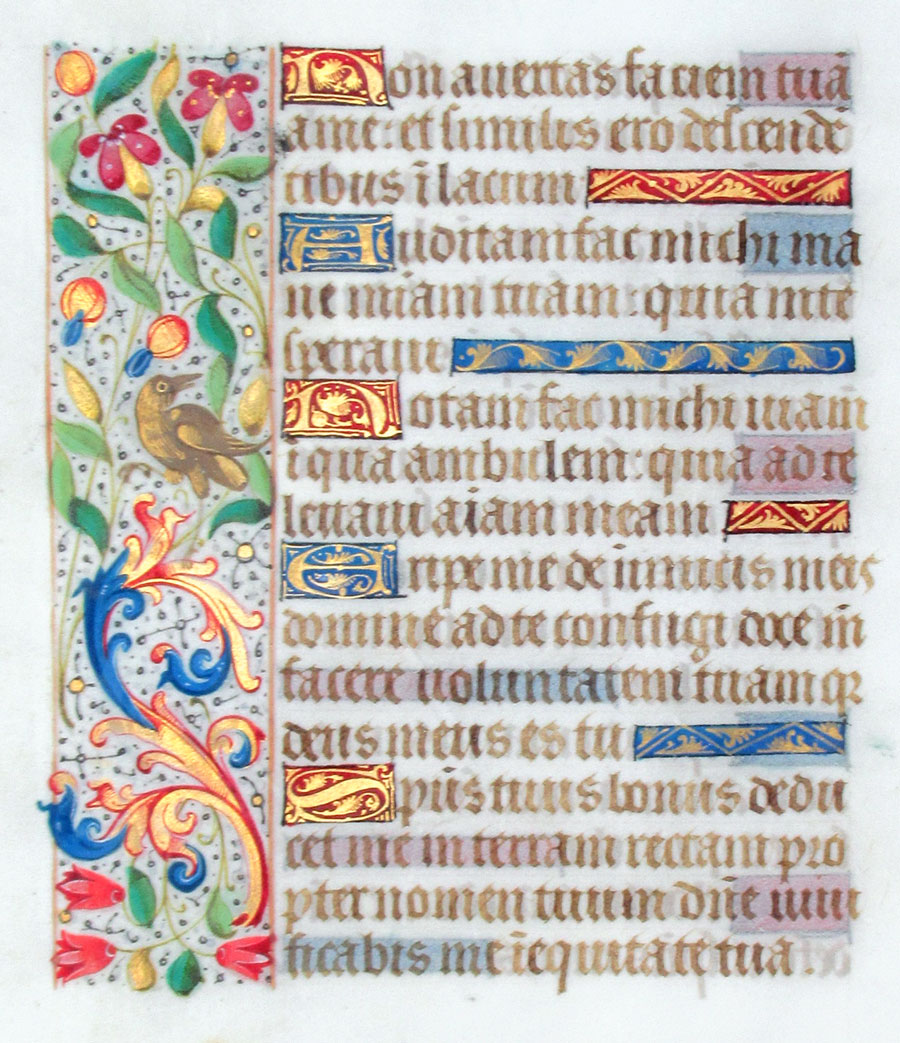 Non auertas faciem tuā
a me: et similis ero descendē
tibus ī lacum
Auditam fac michi ma
ne m̄iam tuam: quia in te
speraui
Notam fac michi uiam
ī qua ambulem: quia ad te
leuaui aīam meam
Eripe me de inimicis meis
domine ad te confugi doce m̄
facere uoluntatem tuam qꝛ
deus meus es tu
Spūs tuus bonus dedu
cet me in terram rectam pro
pter nomen tuum dn̄e uiui
ficabis me ī equitate tua.